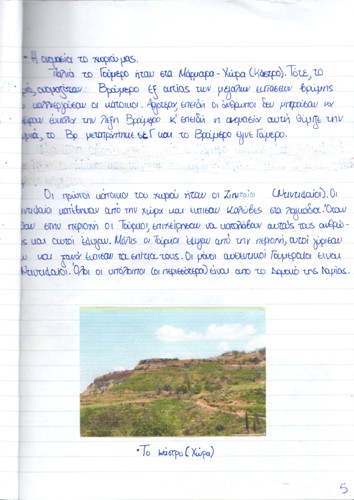 - Η ονομασία το χωριού μας.
Παλιά το Γούμερο ήταν στα Μάρμαρα-Χώρα (Κάστρο). Τότε, το
ονομαζόταν Βρώμερο εξ αιτίας των μεγάλων εκτάσεων βρώμης
καλλιεργούσαν οι κάτοικοι. Αργότερα, επειδή οι άνθρωποι δεν μπορούσαν να
εύκολα την λέξη Βρώμερο κ' επειδή η ονομασία αυτή θύμιζε την
το Βρ μετατράπηκε σε Γ και το Βρώμερο έγινε Γούμερο.
Οι πρώτοι κάτοικοι του χωριού ήταν οι
κατέβηκαν από την Χώρα και έχτισαν καλύβες στα Όταν
στην περιοχή οι Τούρκοι, επιχείρησαν να καταλάβουν αυτούς τους ανθρώ-
και αυτοί έφυγαν. Μόλις οι Τούρκοι έφυγαν από την περιοχή, αυτοί γύρισαν
και ξανά έχτισαν τα σπίτια τους. Οι μόνοι αυθεντικοί Γουμεραίοι είναι
Όλοι οι υπόλοιποι (οι περισσότεροι) είναι από το
• Το κάστρο (Χώρα)
5